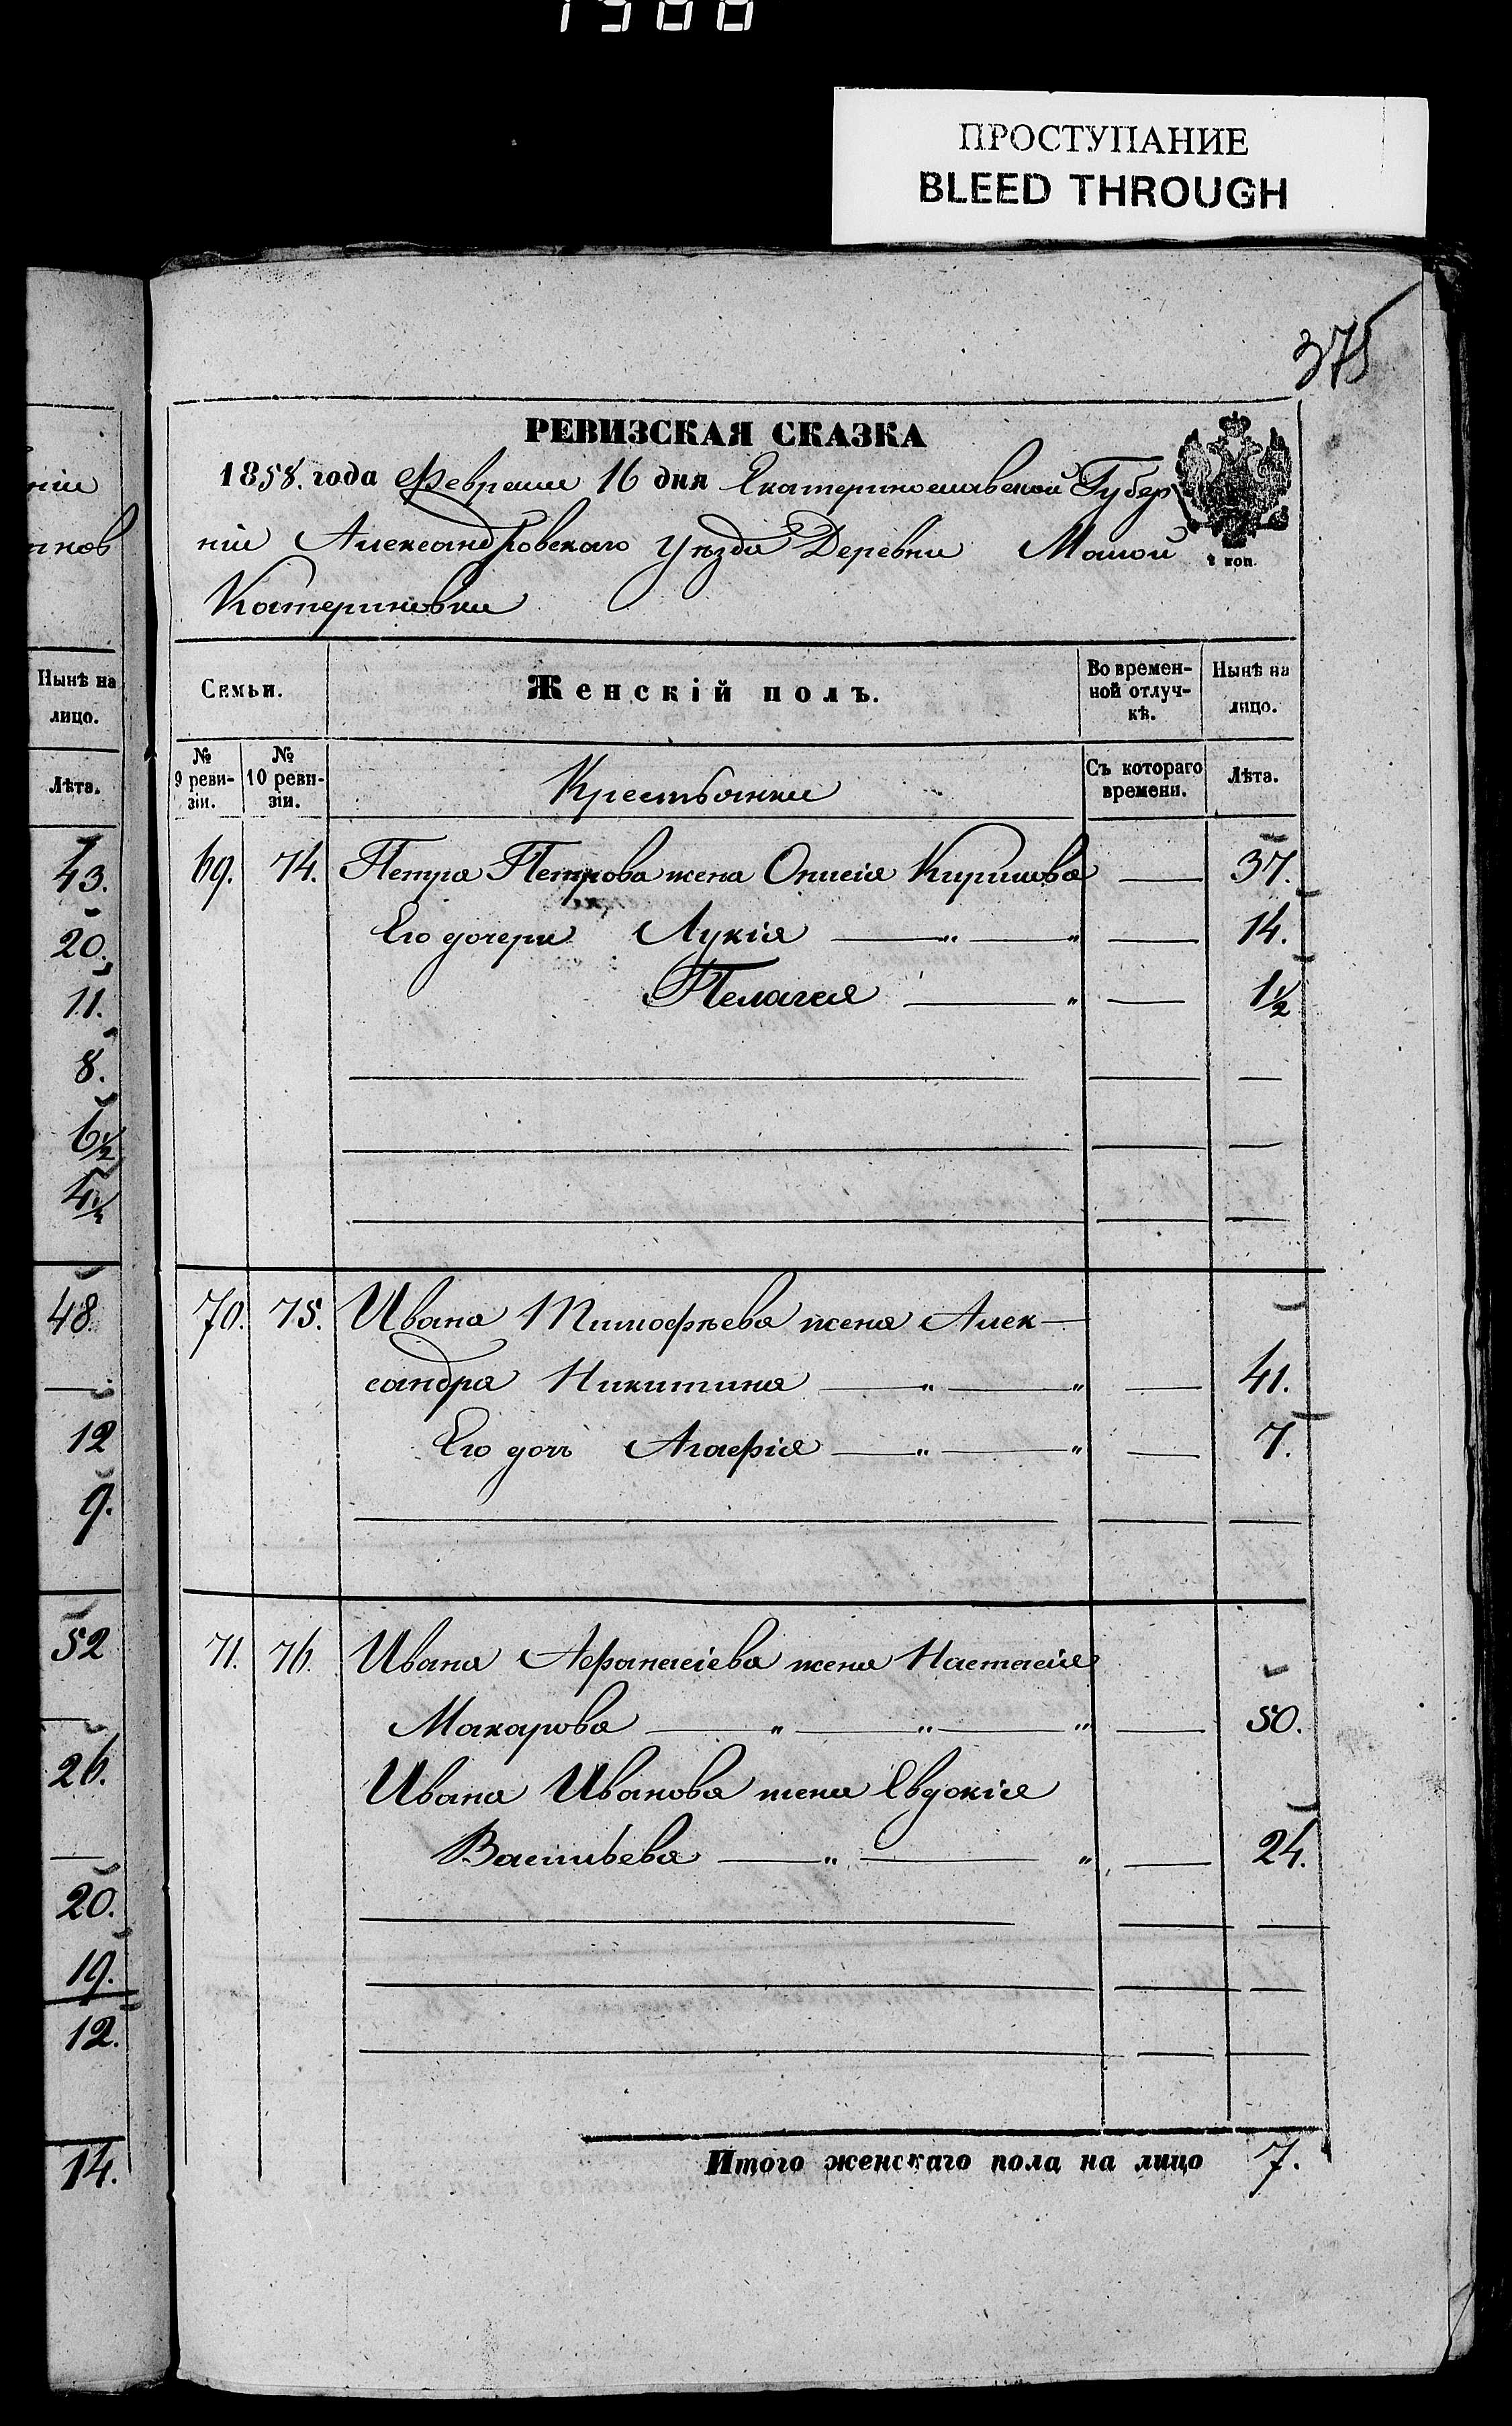 1988
ПРОСТУПАНИЕ
BLEED THROUGH
375
РЕВИЗСКАЯ СКАЗКА
1858. года Февраля 16 дня Екатеринославской Губер
ніи Александровскаго Уѣзда Деревни Малой
Катериновки
коп.
Семьи.
Женскій полъ.
Во времен-
ной отлуч-
кѣ.
Нынѣ на
лицо.
№
9 реви-
зіи.
№
10 реви-
зіи.
Крестьянки
Съ котораго
времени.
Лѣта.
69. 74. Петра Петрова жена Описія Кирилова — 37.
Его дочери Лукія — „ — „ — 14.
Пелагея — „ — 1½
70. 75. Ивана Тимофѣева жена Алек-
сандра Никитина — „ — „ — 41.
Его дочь Агафія — „ — „ — 7.
71. 76. Ивана Афанасіева жена Настасія
Макарова — „ — „ — „ — 50.
Ивана Иванова жена Евдокія
Васильева — „ — „ — 24.
Итого женскаго пола на лицо 7.
ніи
Нынѣ на
лицо.
Лѣта.
43.
20.
11.
8.
6½
4½
48
12
9.
52
26.
20.
19.
12.
14.